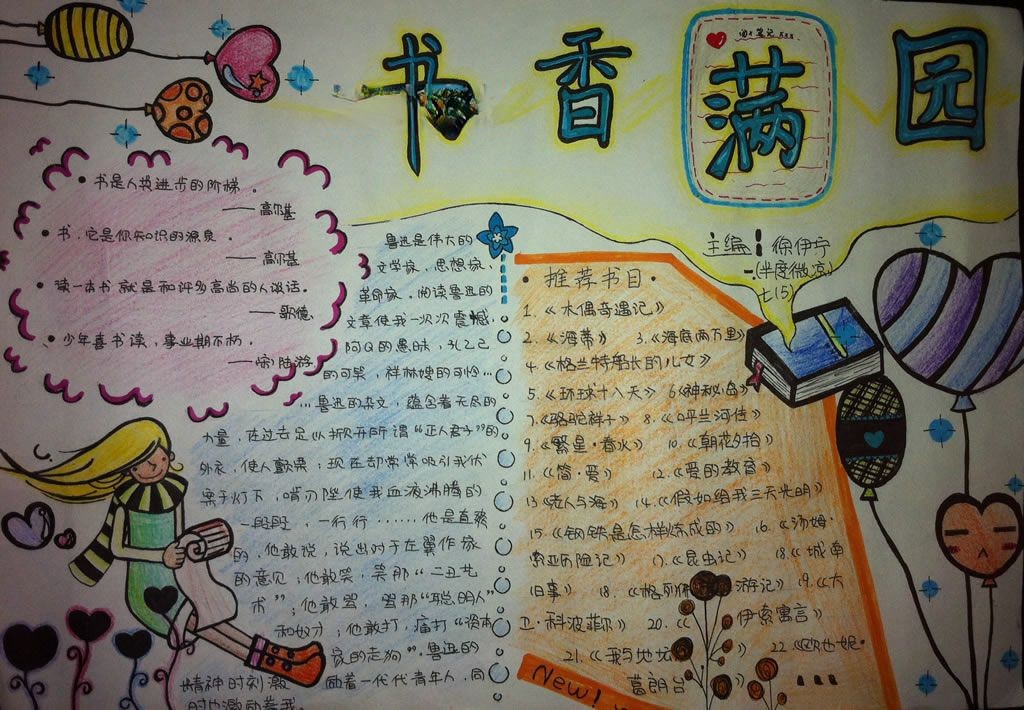 书香满园
主编：徐伊宁
(半度微凉)
七(5)
• 书是人类进步的阶梯。
——高尔基
• 书，它是你知识的源泉。
——高尔基
• 读一本书 就是和许多高尚的人谈话。
——歌德
• 少年喜书读，事业期不朽。
——(宋)陆游
鲁迅是伟大的
文学家，思想家，
革命家。阅读鲁迅的
文章使我一次次震撼，
阿Q的愚昧，孔乙己
的可笑，祥林嫂的可怜…
…鲁迅的杂文，蕴含着无尽的
力量，在过去足以撕开所谓“正人君子”的
外衣，使人颤栗；现在却常常吸引我伏
案于灯下，
使我血液沸腾的
一股股，一行行……他是直爽
的，他敢说，说出对于左翼作家
的意见；他敢笑，笑那“二丑艺
术”；他敢骂，骂那“聪明人”
和奴才；他敢打，痛打“资本
家的走狗”。鲁迅的
精神时刻激励着一代代青年人，同
时也激励着我。
•推荐书目•
1.《木偶奇遇记》
2.《海蒂》 3.《海底两万里》
4.《格兰特船长的儿女》
5.《环球十八天》 6《神秘岛》
7.《骆驼祥子》 8.《呼兰河传》
9.《繁星·春水》 10.《朝花夕拾》
11.《简·爱》 12.《爱的教育》
13《老人与海》 14.《假如给我三天光明》
15.《钢铁是怎样炼成的》 16.《汤姆·
索亚历险记》 17.《昆虫记》 18.《城南
旧事》 18.《格列佛游记》 19.《大
卫·科波菲尔》 20.《伊索寓言》
21.《我与地坛》 22《欧也妮·
葛朗台》 ...
New!